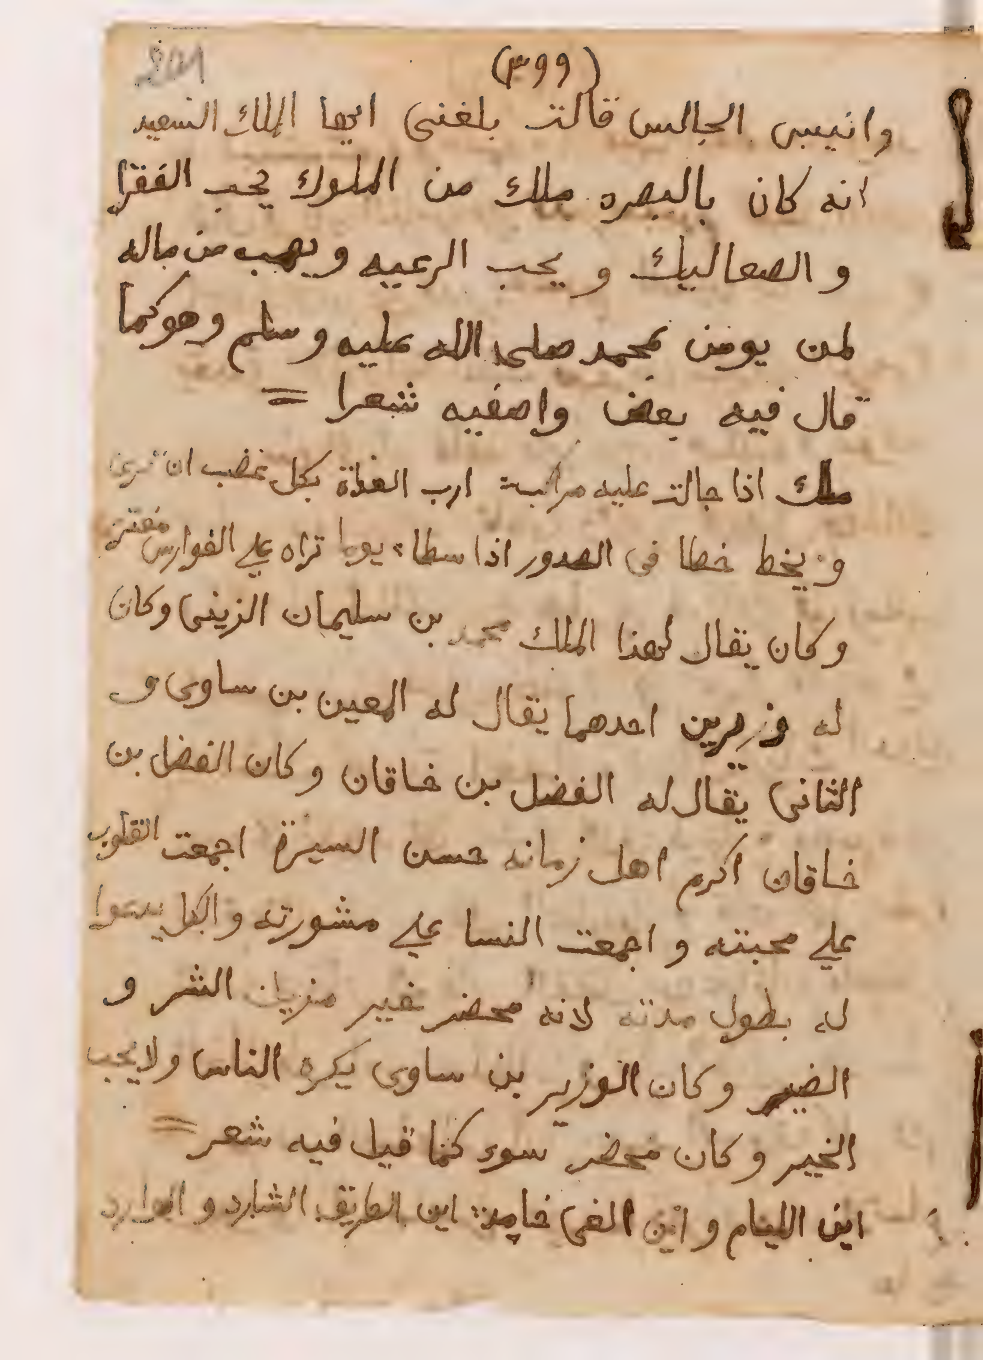 (٣٩٩)
وانيس الجاليس قالت بلغني ايها الملك السعيد
انه كان بالبصره ملك من الملوك يحب الفقرا
و الصعاليك و يحب الرعيه ويهب من ماله
لمن يومن بمحمد صلى الله عليه وسلم وهو كما
قال فيه بعض واصفيه شعرا =
ملك اذا جالت عليه مراكب ارب العداة بكل عضب ان
و يخط خطا في الصدور اذا سطا يوما تراه علي الفوارس
وكان يقال لهذا الملك محمد بن سليمان الزيني وكان
له وزيرين احدهما يقال له المعين بن ساوى و
الثاني يقال له الفضل بن خاقان وكان الفضل بن
خاقان اكرم اهل زمانه حسن السيرة اجمعت القلوب
علي محبته و اجمعت النسا علي مشورته والكل يدعوا
له بطول مدته لانه محضر خير مزيل الشر و
الضير وكان الوزير بن ساوى يكره الناس ولا يحب
الخير وكان محضر سوء كما قيل فيه شعر =
ابن الليام و ابن الطريق الشارد و الوارد